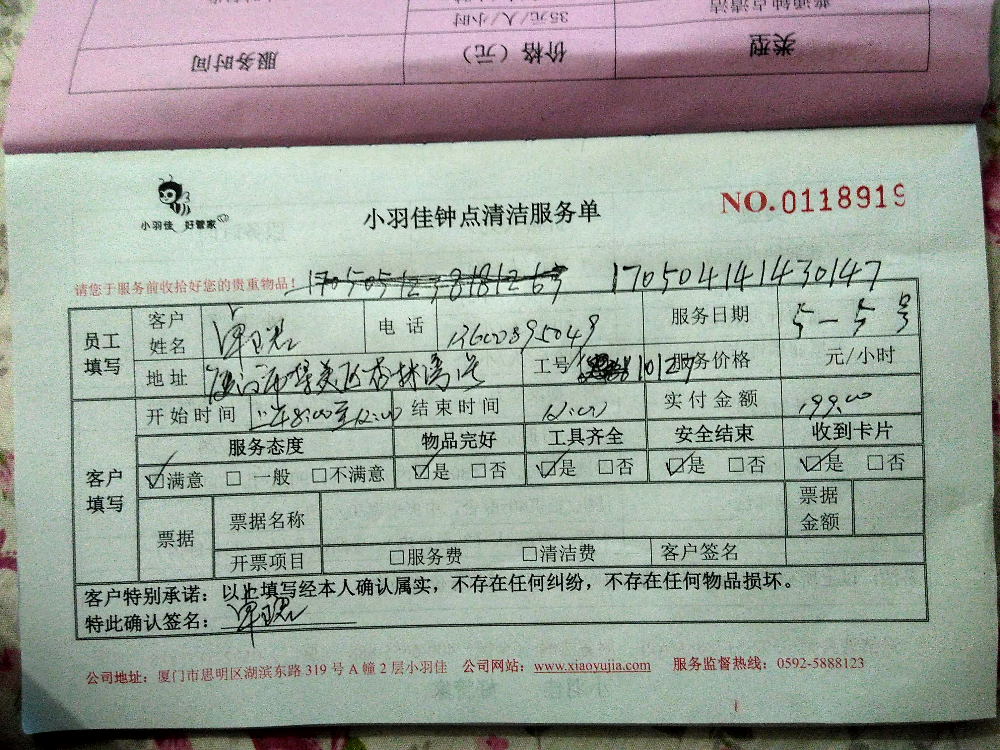 普通钟点清洁
35元/人/小时
类型 价格（元） 服务时间
小羽佳 好管家
小羽佳钟点清洁服务单
NO.0118919
请您于服务前收拾好您的贵重物品！ 170504141430147
员工填写 客户姓名 电话 13600895049 服务日期 5-5号
地址 工号 10127 服务价格 元/小时
客户填写 开始时间 上午8:00至12:00 结束时间 12:00 实付金额 199.00
服务态度 物品完好 工具齐全 安全结束 收到卡片
☑满意 □一般 □不满意 ☑是 □否 ☑是 □否 ☑是 □否 ☑是 □否
票据 票据名称 票据金额
开票项目 □服务费 □清洁费 客户签名
客户特别承诺：以上填写经本人确认属实，不存在任何纠纷，不存在任何物品损坏。
特此确认签名：
公司地址：厦门市思明区湖滨东路 319 号 A 幢 2 层小羽佳 公司网站：www.xiaoyujia.com 服务监督热线：0592-5888123